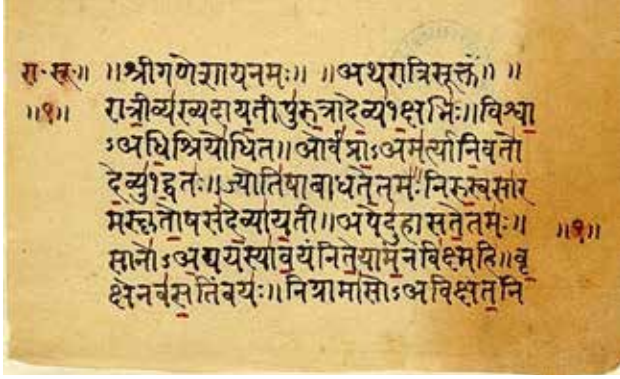 रा॰सू॰॥ ॥श्रीगणेशायनमः॥ ॥अथरात्रिसूक्तं॥ ॥
॥१॥ रात्रीव्यख्यदायतीपुरुत्रादेव्य१क्षभिः॥विश्वा
ऽअधिश्रियोधित॥ओर्वप्राऽअमर्त्यानिवतो
देव्यु१द्वतः॥ज्योतिषाबाधतेतमः॥निरुस्वसार
मस्कृतोषसंदेव्यायती॥अपेदुहासतेतमः॥
सानोऽअद्ययस्यावयंनितेयामन्नविक्ष्महि॥वृ ॥१॥
क्षेनवसतिंवयः॥निग्रामासोऽअविक्षतनि